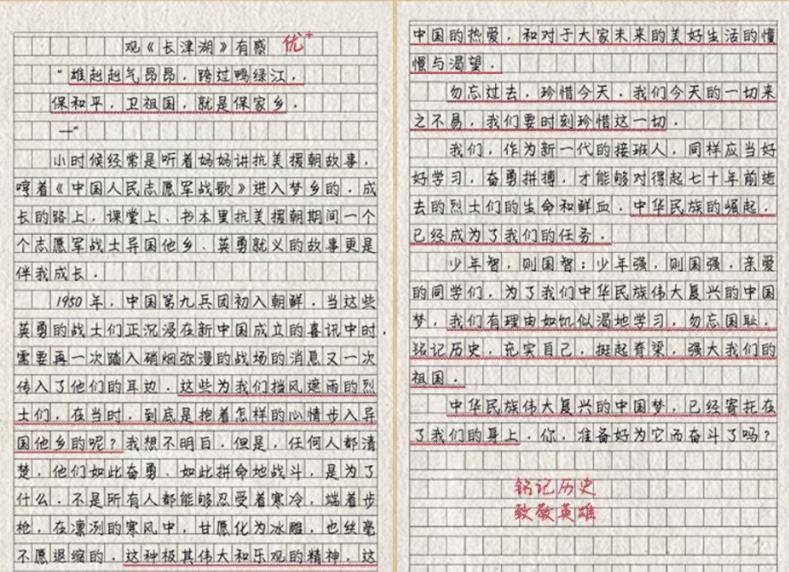 观《长津湖》有感 优+
“雄赳赳气昂昂，跨过鸭绿江．
保和平，卫祖国，就是保家乡．
—”
小时候经常是听着妈妈讲抗美援朝故事，
哼着《中国人民志愿军战歌》进入梦乡的．成
长的路上，课堂上、书本里抗美援朝期间一个
个志愿军战士异国他乡、英勇就义的故事更是
伴我成长．
1950年，中国第九兵团初入朝鲜．当这些
英勇的战士们正沉浸在新中国成立的喜讯中时，
需要再一次踏入硝烟弥漫的战场的消息又一次
传入了他们的耳边．这些为我们挡风遮雨的烈
士们，在当时，到底是抱着怎样的心情步入异
国他乡的呢？我想不明白．但是，任何人都清
楚，他们如此奋勇、如此拼命地战斗，是为了
什么．不是所有人都能够忍受着寒冷，端着步
枪，在凛冽的寒风中，甘愿化为冰雕，也丝毫
不愿退缩的．这种极其伟大和乐观的精神，这
中国的热爱，和对于大家未来的美好生活的憧
憬与渴望．
勿忘过去，珍惜今天．我们今天的一切来
之不易，我们要时刻珍惜这一切．
我们，作为新一代的接班人，同样应当好
好学习，奋勇拼搏，才能够对得起七十年前逝
去的烈士们的生命和鲜血．中华民族的崛起，
已经成为了我们的任务．
少年智，则国智；少年强，则国强，亲爱
的同学们，为了我们中华民族伟大复兴的中国
梦，我们有理由如饥似渴地学习，勿忘国耻，
铭记历史，充实自己，挺起脊梁，强大我们的
祖国．
中华民族伟大复兴的中国梦，已经寄托在
了我们的身上．你，准备好为它而奋斗了吗？
铭记历史
致敬英雄